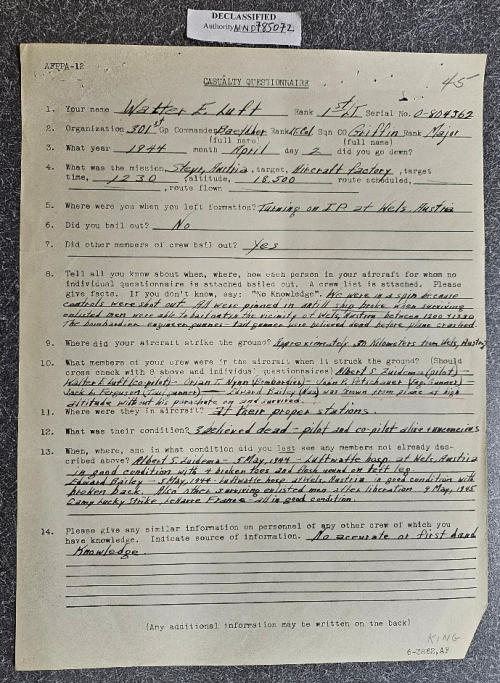 DECLASSIFIED
Authority NND785072
AFPPA-12
45
CASUALTY QUESTIONNAIRE
1. Your name Walter E. Luft Rank 1st LT Serial No. 0-804362
2. Organization 301st Gp Commander Rank Lt Col Sqn CO Griffin Rank Major
(full name) (full name)
3. What year 1944 month April day 2 did you go down?
4. What was the mission, Steyr, Austria, target, Aircraft factory, target
time, 1230, altitude, 18,500 route scheduled,
, route flown
5. Where were you when you left formation? Turning on I.P. at Wels, Austria
6. Did you bail out? No
7. Did other members of crew bail out? Yes
8. Tell all you know about when, where, how each person in your aircraft for whom no
individual questionnaire is attached bailed out. A crew list is attached. Please
give facts. If you don't know, say: "No Knowledge". We were in a spin because
controls were shot out. All were pinned in until ship broke when surviving
enlisted men were able to bail out in the vicinity of Wels, Austria between 1200 & 1230
The bombardier engineer gunner - tail gunner were believed dead before plane crashed.
9. Where did your aircraft strike the ground? Approximately kilometers from Wels, Austria
10. What members of your crew were in the aircraft when it struck the ground? (Should
cross check with 8 above and individual questionnaires) Albert S. Zuidema (pilot) -
Walter E. Luft (co-pilot) - Brian T. Nynn (Bombardier) - John P. Pitschauer (Eng. Gunner) -
Jack A. Ferguson (Tail gunner) - Edward Bailey (Nav) was thrown from plane at high
altitude without his parachute on and survived.
11. Where were they in aircraft? At their proper stations.
12. What was their condition? 3 believed dead - pilot and co-pilot alive
13. When, where, and in what condition did you last see any members not already des-
cribed above? Albert S. Zuidema - 5 May, 1944 - Luftwaffe hosp. at Wels, Austria
in good condition with 4 broken toes and flesh wound on left leg.
Edward Bailey - 5 May, 1944 - Luftwaffe hosp at Wels, Austria in good condition with
broken back. Also other surviving enlisted men after liberation 9 May, 1945
Camp Lucky Strike, LeHavre France - all in good condition.
14. Please give any similar information on personnel of any other crew of which you
have knowledge. Indicate source of information. No accurate or first hand
Knowledge.
(Any additional information may be written on the back)
KING
6-3862,AF